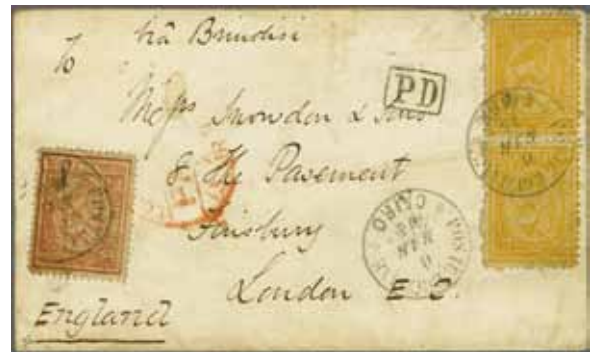 To
via Brindisi
Messrs Snowden & Sons
PD
8 The Pavement
Finsbury
London E.C.
England
POSTE
CAIRO